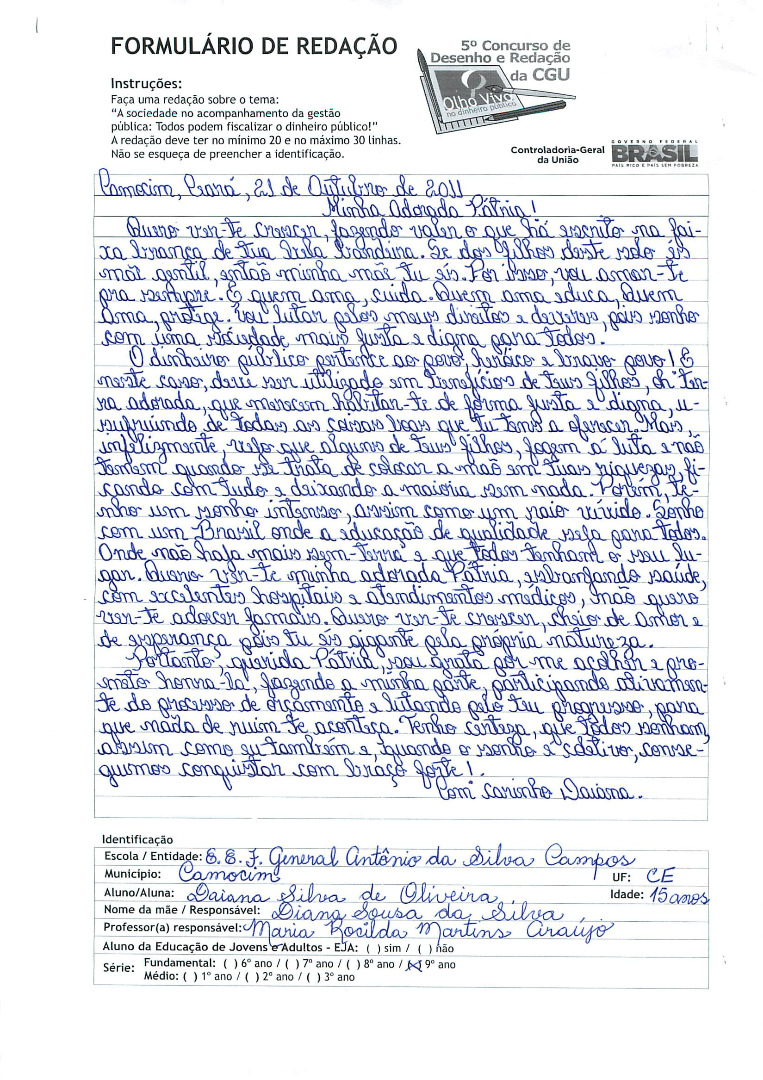 FORMULÁRIO DE REDAÇÃO
5º Concurso de
Desenho e Redação
da CGU
Olho Vivo
no dinheiro público
Instruções:
Faça uma redação sobre o tema:
"A sociedade no acompanhamento da gestão
pública: Todos podem fiscalizar o dinheiro público!"
A redação deve ter no mínimo 20 e no máximo 30 linhas.
Não se esqueça de preencher a identificação.
Controladoria-Geral
da União
GOVERNO FEDERAL
BRASIL
PAÍS RICO É PAÍS SEM POBREZA
Camocim, Ceará, 21 de Outubro de 2011
Minha Adorada Pátria!
Quero ver-te crescer, fazendo valer o que há escrito na fai-
xa branca de tua bela bandeira. Se dos filhos deste solo és
mãe gentil, então minha mãe tu és. Por isso, vou amar-te
pra sempre. E quem ama, cuida. Quem ama educa, Quem
ama, protege. Vou lutar pelos meus direitos e deveres, pois sonho
com uma sociedade mais justa e digna para todos.
O dinheiro público pertence ao povo, heróico e bravo povo! E
neste caso, deve ser utilizado em benefícios de teus filhos, oh ter-
ra adorada, que merecem habitar-te de forma justa e digna, u-
sufruindo de todas as coisas boas que tu tens a oferecer. Mas,
infelizmente, vejo que alguns de teus filhos, fogem à luta e não
temem quando se trata de colocar a mão em tuas riquezas, fi-
cando com tudo e deixando a maioria sem nada. Porém, te-
nho um sonho intenso, assim como um raio vívido. Sonho
com um Brasil onde a educação de qualidade seja para todos.
Onde não haja mais sem-terra e que todos tenham o seu lu-
gar. Quero ver-te minha adorada Pátria, esbanjando saúde,
com excelentes hospitais e atendimentos médicos, não quero
ver-te adoecer jamais. Quero ver-te crescer, cheio de amor e
de esperança pois tu és gigante pela própria natureza.
Portanto, querida Pátria, sou grata por me acolher e pro-
meto honra-lá, fazendo a minha parte, participando ativamen-
te do processo de orçamento e lutando pelo teu progresso, para
que nada de ruim te aconteça. Tenho certeza, que todos sonham,
assim como eu também e, quando o sonho é coletivo, conse-
guimos conquistar com braço forte!.
Com carinho Daiana.
Identificação
Escola / Entidade: E. E. F. General Antônio da Silva Campos
Município: Camocim UF: CE
Aluno/Aluna: Daiana Silva de Oliveira Idade: 15 anos
Nome da mãe / Responsável: Diana Sousa da Silva
Professor(a) responsável: Maria Rocilda Martins Araújo
Aluno da Educação de Jovens e Adultos - EJA: ( ) sim / ( ) não
Série: Fundamental: ( ) 6º ano / ( ) 7º ano / ( ) 8º ano / (X) 9º ano
Médio: ( ) 1º ano / ( ) 2º ano / ( ) 3º ano